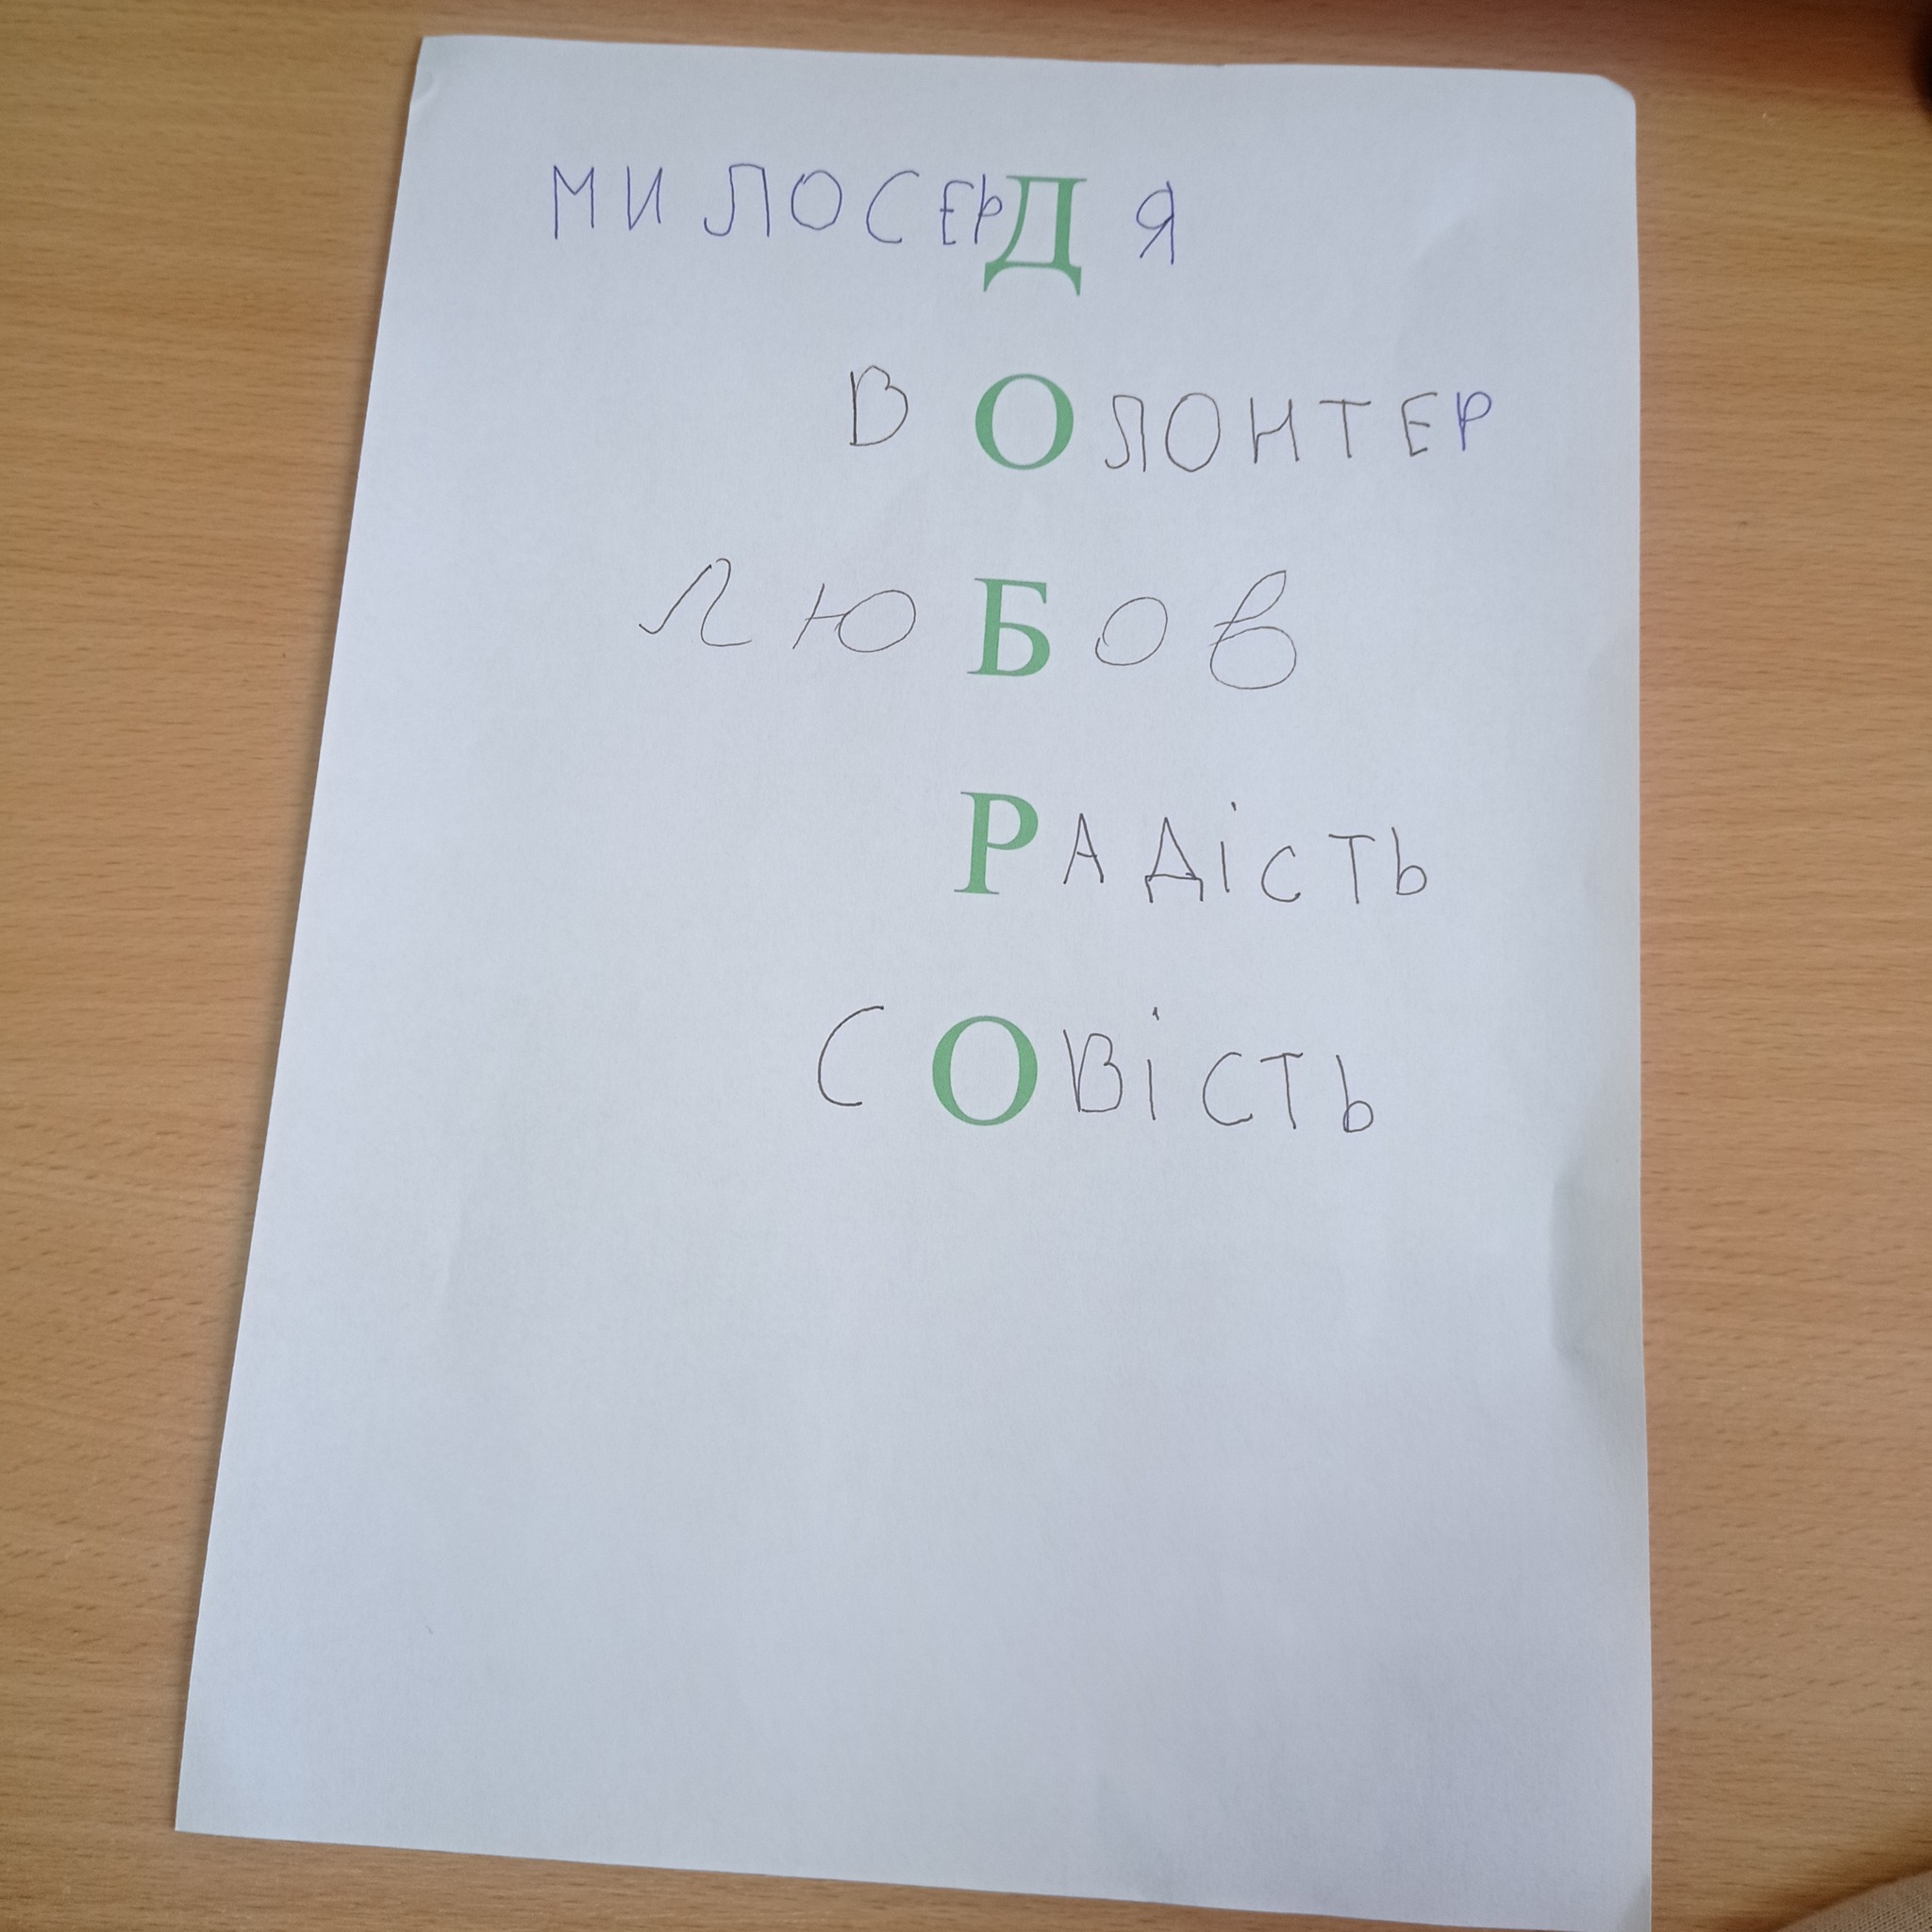 МИЛОСЕРДЯ
ВОЛОНТЕР
ЛЮБОВ
РАДІСТЬ
СОВІСТЬ